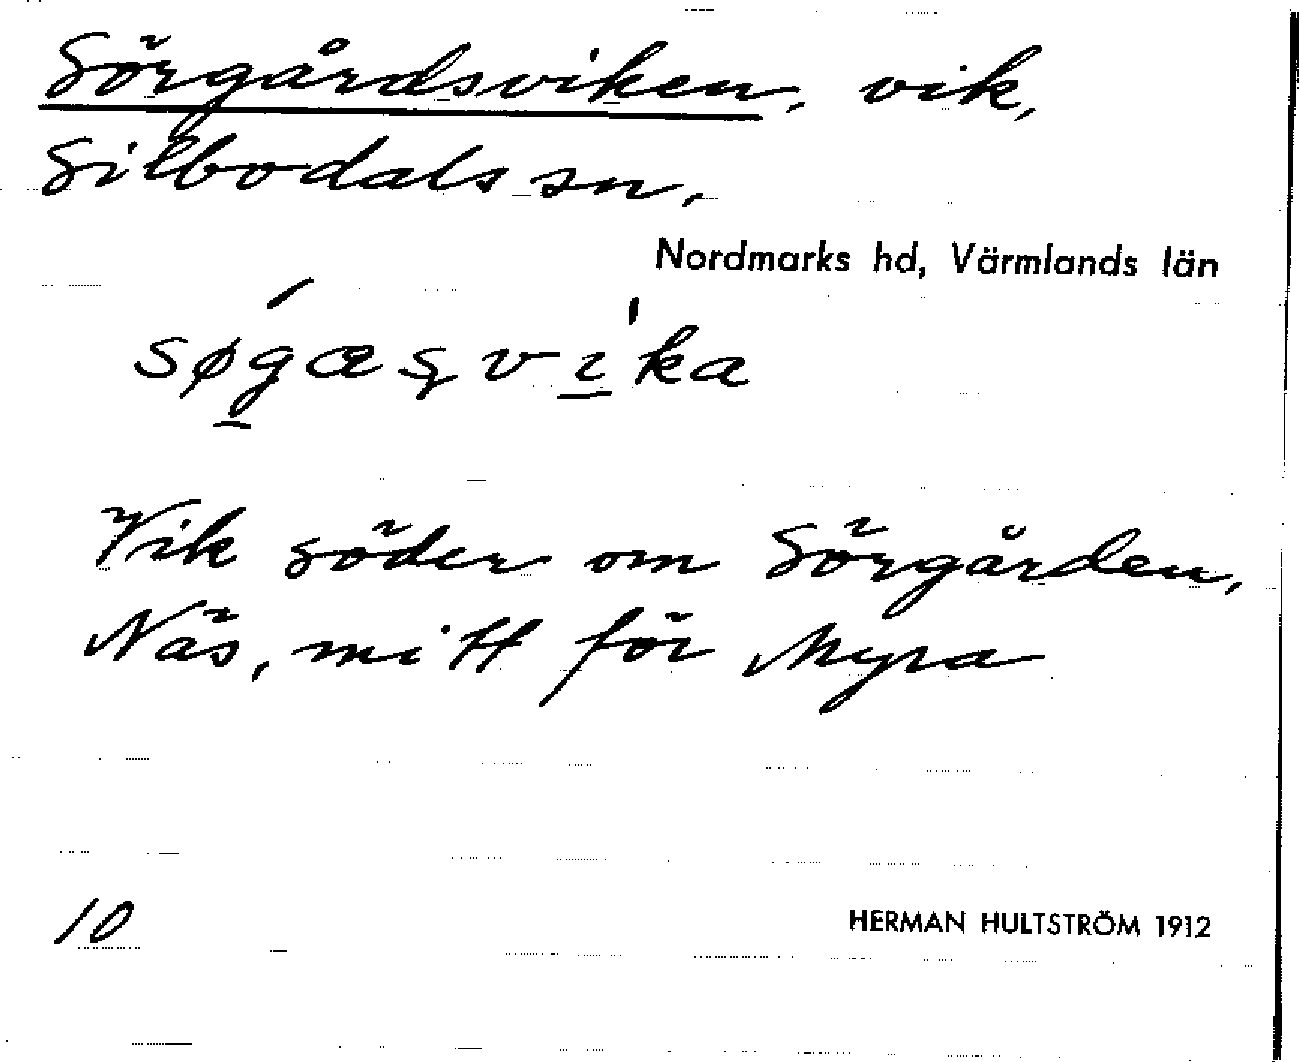 Sörgårdsviken, vik,
Silbodals sn,
Nordmarks hd, Värmlands län
søgæʂvika
Vik söder om Sörgården,
Näs, mitt för Myra
10
HERMAN HULTSTRÖM 1912